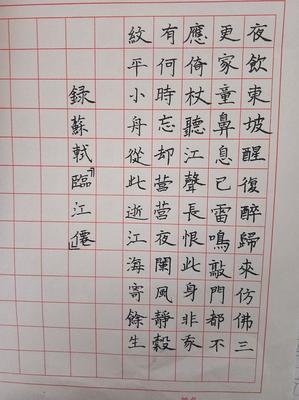 夜飲東坡醒復醉歸來仿佛三
更家童鼻息已雷鳴敲門都不
應倚杖聽江聲長恨此身非我
有何時忘却營營夜闌風靜縠
紋平小舟從此逝江海寄餘生
録蘇軾『臨江僊』